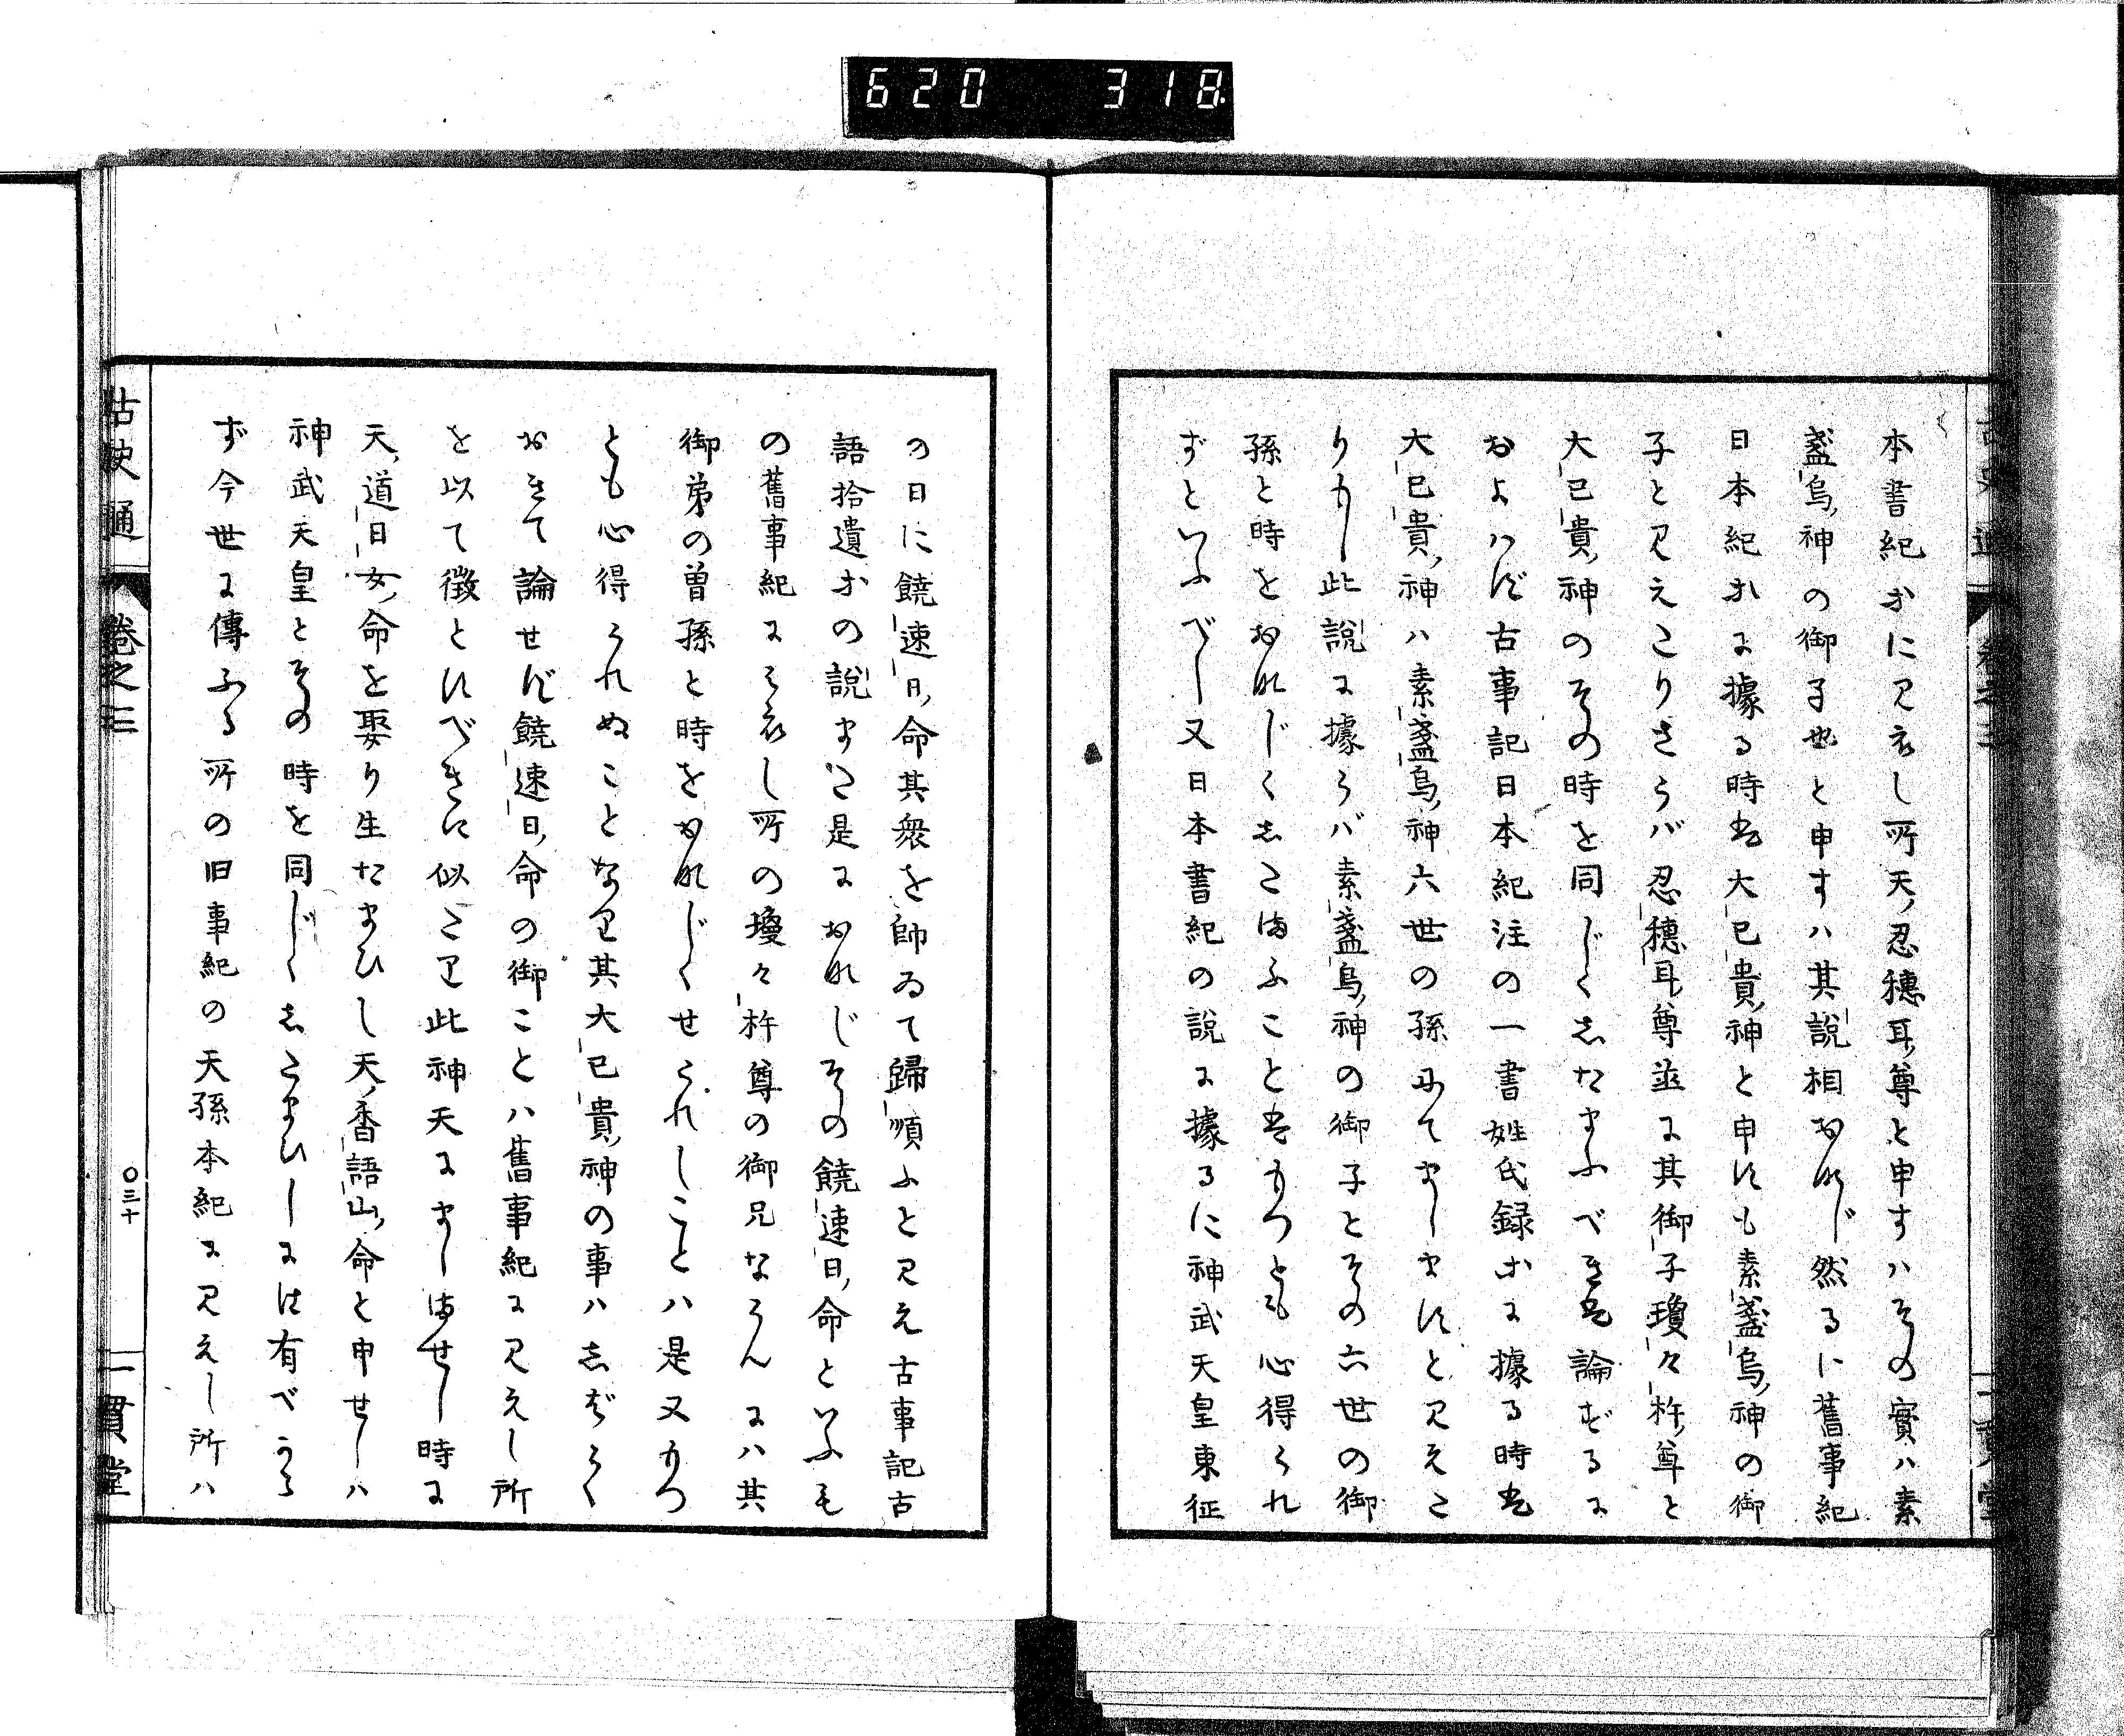 620 318
本書紀才に見えし所天忍穂耳尊と申すハその實ハ素
盞烏神の御子也と申すハ其説相おなじ然るに舊事紀
日本紀才に據る時は大己貴神と申せしも素盞烏神の御
子と見えたりさらバ忍穂耳尊並に其御子瓊々杵尊と
大己貴神のその時を同じくしたまふべきは論ずるに
およハず古事記日本紀注の一書姓氏録才に據る時は
大己貴神ハ素盞烏神六世の孫にてましますと見えた
りもし此説に據らバ素盞烏神の御子とその六世の御
孫と時をおなじくしたまふこと尤もつとも心得られ
ずといふべし又日本書紀の説に據るに神武天皇東征
の日に饒速日命其衆を帥ゐて歸順ふと見え古事記古
語拾遺才の説また是におなじその饒速日命といふも
の舊事紀に見えし所の瓊々杵尊の御兄ならんにハ其
御弟の曽孫と時をおなじくせられしことハ是又もつ
とも心得られぬことなり其大己貴神の事ハしばらく
おきて論せず饒速日命の御ことハ舊事紀に見えし所
を以て徴とすべきに似たり此神天にましませし時に
天道日女命を娶り生たまひし天香語山命と申せしハ
神武天皇とその時を同じくしたまひしには有べから
ず今世に傳ふる所の旧事紀の天孫本紀に見えし所ハ
古史通
卷之三
〇三十
一貫堂